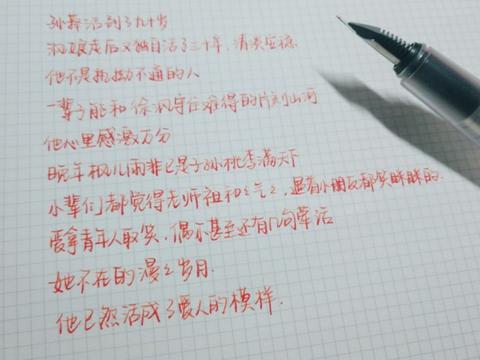 孙莽活到了九十岁
枫娘走后又独自活了二十年，清淡安稳
他不是执拗不通的人
一辈子能和徐枫守住难得的片刻山河
他心里感激万分
晚年枫儿雨非已是子孙桃李满天下
小辈们都觉得老师祖和和气气，逗着小朋友都笑眯眯的.
爱拿青年人取笑，偶尔甚至还有几句荤话
她不在的漫漫岁月.
他已然活成了爱人的模样.